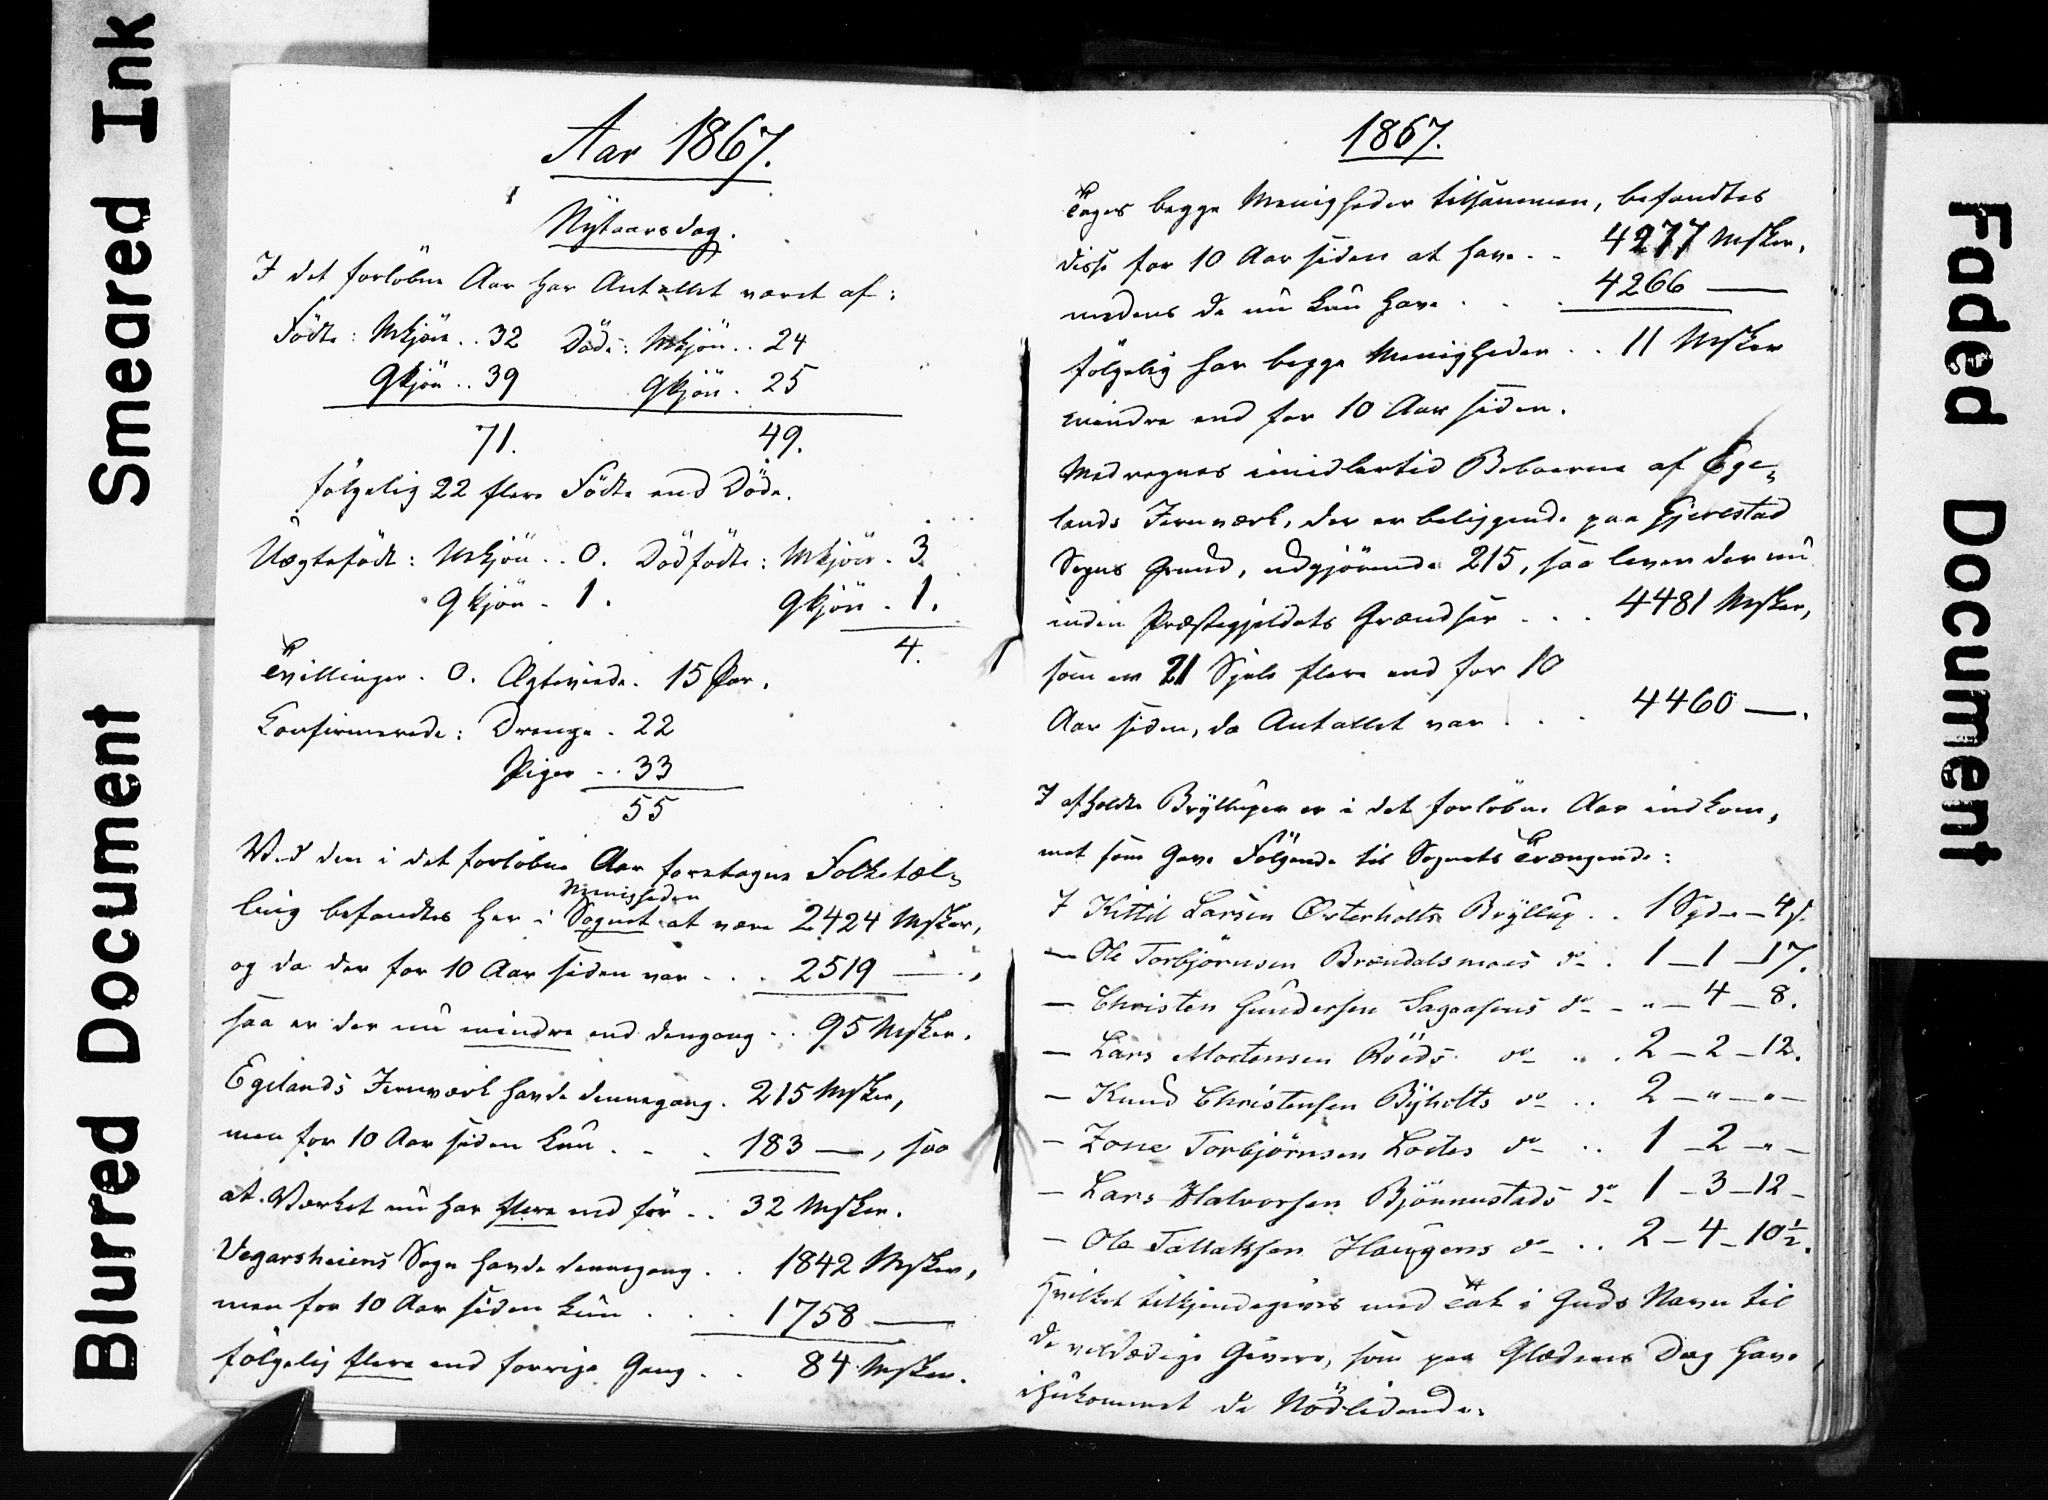 Smeared Ink
Blurred Document
Faded Document
Aar 1867.
Nytaarsdag.
I det forløbne Aar har Antallet været af:
Födte: Mkjön .. 32 Döde: Mkjön .. 24
Qkjön .. 39 Qkjön . 25
71. 49.
fölgelig 22 flere Födte end Döde.
Uægtefödt: Mkjön .. 0. Dödfödte: Mkjön . 3
Qkjön . 1. Qkjön . 1.
4.
Tvillinger . 0. Ægteviede . 15 Par.
Confirmerede: Drenge . 22
Piger .. 33
55
Ved den i det forløbne Aar foretagne Folketæl-
Menigheden
ling befandtes her i Sognet at være 2424 Msker,
og da der for 10 Aar siden var . . . 2519 —,
saa er der nu mindre end dengang .. 95 Msker.
Egelands Jernværk havde dennegang . 215 Msker,
men for 10 Aar siden kun . . . 183 —, saa
at Værket nu har flere end för .. 32 Msker.
Vegarsheiens Sogn havde dennegang . . 1842 Msker,
men for 10 Aar siden kun . . . 1758 —
fölgelig flere end forrige Gang . . 84 Msker.
1867.
Tages begge Menigheder tilsammen, befandtes
disse for 10 Aar siden at have . . 4277 Msker,
medens de nu kun have . . . 4266 —
fölgelig har begge Menigheder . . 11 Msker
mindre end for 10 Aar siden.
Medregnes imidlertid Beboerne af Ege-
lands Jernværk, der er beliggende paa Gjerestad
Sogns Grund, udgjörende 215, saa lever der nu
inden Præstegjeldets Grændser . . . 4481 Msker,
som er 21 Sjele flere end for 10
Aar siden, da Antallet var . . . 4460 —.
I afholdte Bryllupper er i det forløbne Aar indkom-
met som Gave Fölgende til Sognets Trængende:
I Kittil Larsen Østerholts Bryllup . . 1 Spd — 4 s.
— Ole Torbjörnsen Brændalsmoes do . 1 — 1 — 17.
— Christen Gundersen Sagaasens do - " — 4 — 8.
— Lars Mortensen Röeds do . . 2 — 2 — 12.
— Knud Christensen Byholts do . . 2 — " — " —
— Zone Torbjörnsen Lostes do . . 1 — 2 — " —
— Lars Halvorsen Bjönnustads do 1 — 3 — 12 -
— Ole Tallaksen Haugens do . . 2 — 4 — 10½.
Hvilket tilkjendegives med Tak i Guds Navn til
de veldædige Givere, som paa Glædens Dag have
ihukommet de Nödlidende.